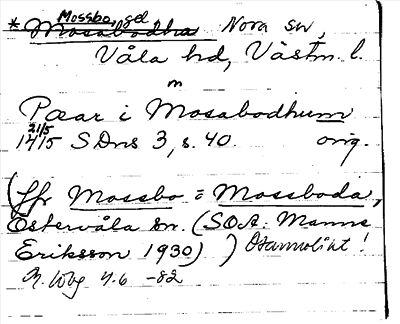 Mossbo, gd
* Mosabodha Nora sn,
Våla hd, Västm. l.
m
Paar i Mosabodhum
21/5
1415 SDns 3, s. 40. orig.
(Jfr Mossbo = Mossboda,
Östervåla sn. (SOA: Manne
Eriksson 1930)) Osannolikt!
4.6 -82